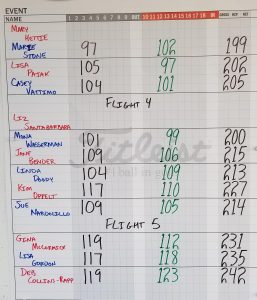 EVENT
NAME 1 2 3 4 5 6 7 8 9 OUT 10 11 12 13 14 15 16 17 18 IN GROSS HCP NET
Mary
Kettie
Marie
Stone 97 102 199
Lisa
Pajak 105 97 202
Casey
Vattimo 104 101 205
Flight 4
Liz
Santabarbara
Mona
Wiegerman 101 99 200
Jane
Bender 109 106 215
Linda
Doody 104 109 213
Kim
Oppelt 117 110 227
Sue
Mardocillo 109 105 214
Flight 5
Gina
McCormick 119 112 231
Lisa
Gordon 117 118 235
Deb
Collins-Rapp 119 123 242
Titleist
#1 ball in g